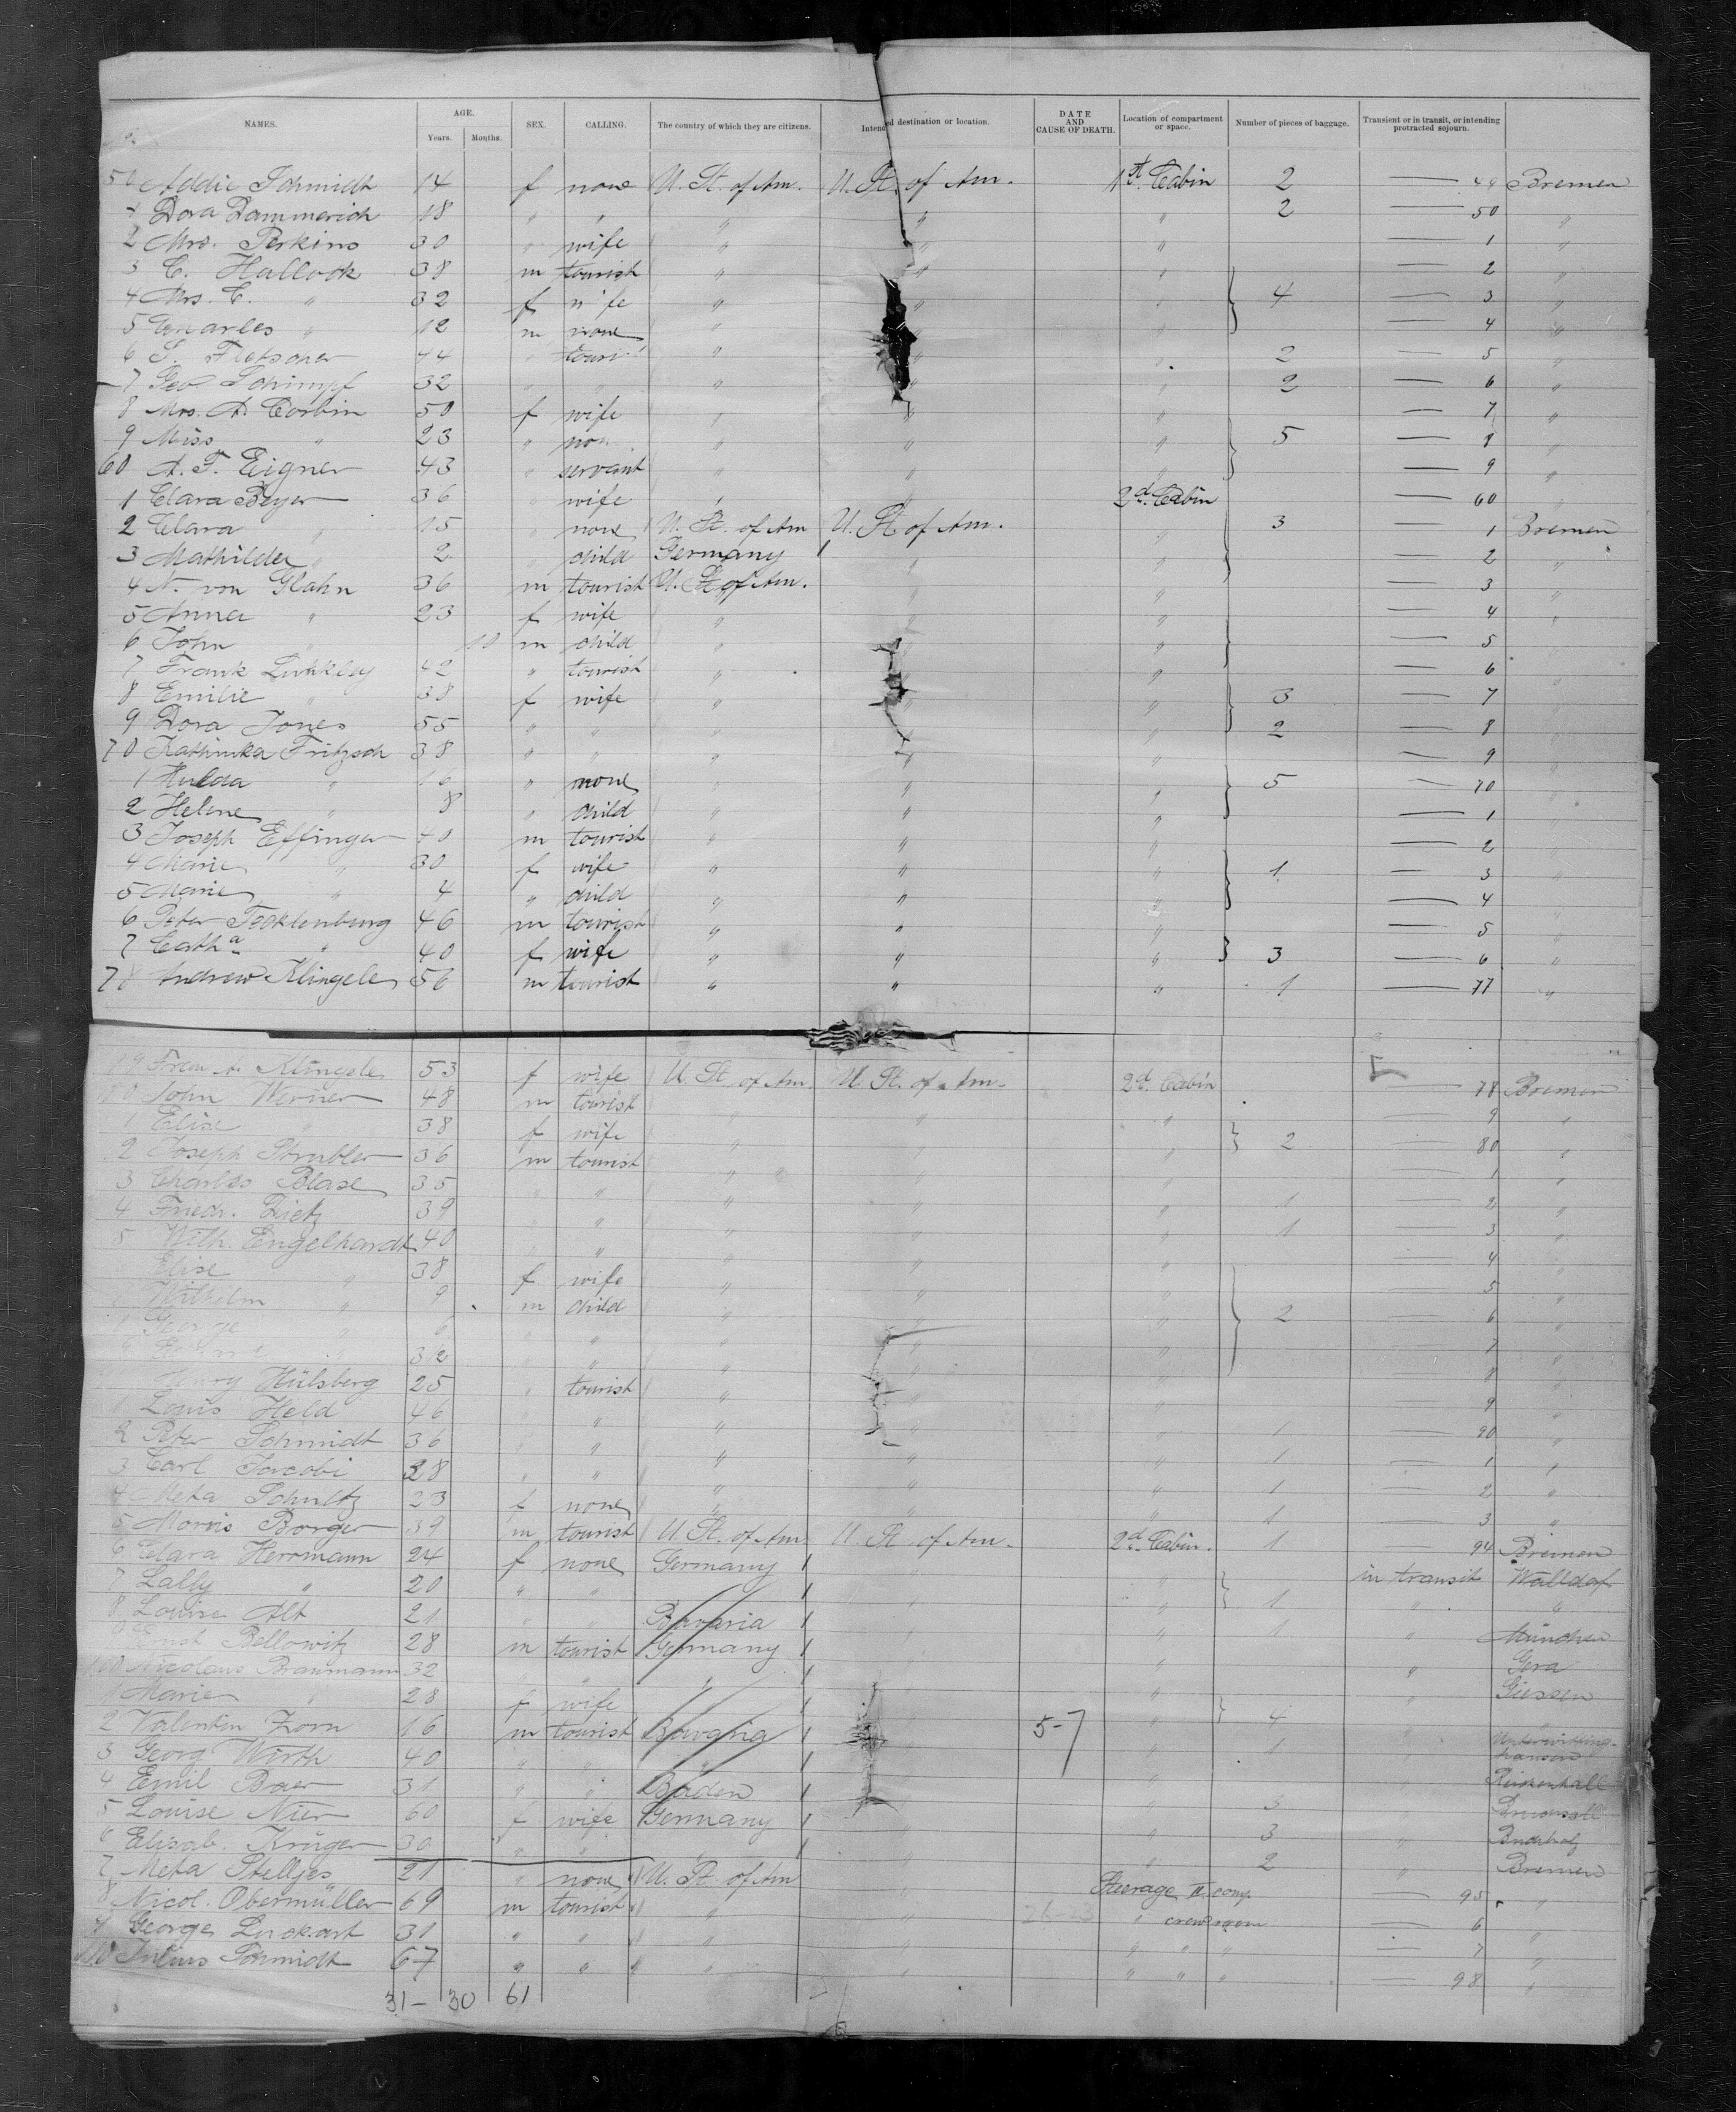 NAMES. AGE. Years. Months. SEX. CALLING. The country of which they are citizens. Intended destination or location. DATE AND CAUSE OF DEATH. Location of compartment or space. Number of pieces of baggage. Transient or in transit, or intending protracted sojourn.
50 Addie Schmidt 14 f none U. St. of Am. U. St. of Am. 1st Cabin 2 — 49 Bremen
1 Dora Dammerich 18 " " " " " 2 — 50 "
2 Mrs. Perkins 30 " wife " " " — 1 "
3 C. Hallock 38 m tourist " " " — 2 "
4 Mrs. C. " 32 f wife " " " 4 — 3 "
5 Charles " 12 m none " " " — 4 "
6 S. Fletscher 44 " tourist " " " 2 — 5 "
7 Geo Schimpf 32 " " " " " 2 — 6 "
8 Mrs. A. Corbin 50 f wife " " " — 7 "
9 Miss " 23 " none " " " 5 — 8 "
60 A. F. Eigner 43 " servant " " " — 9 "
1 Clara Beyer 36 " wife " " 2d Cabin — 60
2 Clara " 15 " none U. St. of Am U. St. of Am. " 3 — 1 Bremen
3 Mathilde " 2 " child Germany " " — 2 "
4 N. von Glahn 36 m tourist U. St. of Am. " " — 3 "
5 Anna " 23 f wife " " " — 4 "
6 John " 10 m child " " " — 5 "
7 Frank 42 " tourist " " " — 6 "
8 Emilie " 38 f wife " " " 3 — 7 "
9 Dora Jones 55 " " " " " 2 — 8 "
70 Kathinka Fritzsch 38 " " " " " — 9 "
1 Hulda " 16 " none " " " 5 — 70 "
2 Helene " 8 " child " " " — 1 "
3 Joseph Effinger 40 m tourist " " " — 2 "
4 Marie " 30 f wife " " " 1 — 3 "
5 Marie " 4 " child " " " — 4 "
6 Peter Tecklenburg 46 m tourist " " " — 5 "
7 Catha " 40 f wife " " " 3 — 6 "
78 Andrew Klingele 56 m tourist " " " 1 — 77 "
79 Frau A. Klingele 53 f wife U. St. of Am. U. St. of Am. 2d Cabin — 78 Bremen
80 John Werner 48 m tourist " " " — 9 "
1 Elise " 38 f wife " " " 2 — 80 "
2 Joseph Strubler 36 m tourist " " " — 1 "
3 Charles Blase 35 " " " " " 1 — 2 "
4 Friedr. Dietz 39 " " " " " 1 — 3 "
5 Wilh. Engelhardt 40 " " " " " — 4 "
Elise " 38 f wife " " " — 5 "
Wilhelm " 9 m child " " " 2 — 6 "
George " 6 " " " " " — 7 "
" " " " " — 8 "
Henry Hülsberg 25 " tourist " " " — 9 "
1 Louis Held 46 " " " " " 1 — 90 "
2 Peter Schmidt 36 " " " " " 1 — 1 "
3 Carl Jacobi 28 " " " " " 1 — 2 "
4 Meta Schultz 23 f none " " " 1 — 3 "
5 Morris Borger 39 m tourist U. St. of Am. U. St. of Am. 2d Cabin. 1 — 94 Bremen
6 Clara Herrmann 24 f none Germany " " in transit Walldorf
7 Lally " 20 " " " " 1 " "
8 Louise Alt 21 " " Bavaria " " 1 " München
9 Ernst Bellowitz 28 m tourist Germany " " " Gera
100 Nicolaus Braumann 32 " " " " " " Giessen
1 Marie " 28 f wife " " " 4 "
2 Valentin Zorn 16 m tourist Bavaria " 5-7 " 1 "
3 Georg Wirth 40 " " " " "
4 Emil Baer 31 " " Baden " " 3
5 Louise Nier 60 f wife Germany " " 3 " Buchholz
6 Elisab. Krüger 30 " " " " " 2 " Bremen
7 Meta Stelljes 21 " none U. St. of Am " Steerage II comp. — 95 "
8 Nicol. Obermüller 69 m tourist " " " crew room — 6 "
9 George Luckart 31 " " " " " " " — 7 "
110 Julius Schmidt 67 " " " " " " " — 98 "
31 - 30 61